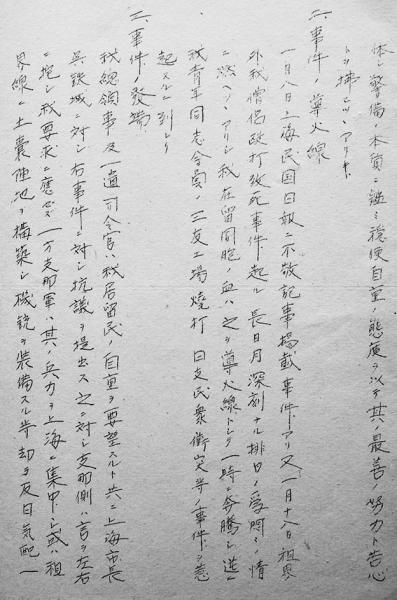 体シ警備ノ本質ニ鑑ミ穏便自重ノ態度ヲ以テ其ノ最善ノ努力ト苦心
トヲ拂ヒツヽアリキ
二、事件ノ導火線
一月八日上海民国日報ニ不敬記事掲載事件アリ又一月十八日租界
外我僧侶殴打致死事件起ル 長日月深刻ナル排日ノ受難ニ情
ニ燃ヘツヽアリシ我在留同胞ノ血ハ之ヲ導火線トシテ一時ニ奔騰シ遂ニ
我青年同志会員ノ三友工場焼打 日支民衆ノ衝突等ノ事件ヲ惹
起スルニ到レリ
三、事件ノ發端
我總領事及遣司令官ハ我居留民ノ自重ヲ要望スルト共ニ上海市長
呉鉄城ニ対シ右事件ニ対シ抗議ヲ提出ス之ニ対シ支那側ハ言ヲ左右
ニ托シ我要求ニ應セズ一方支那軍ハ其ノ兵力ヲ上海ニ集中シ或ハ租
界線ニ土嚢陣地ヲ構築シ機銃ヲ装備スル等却テ反日気配一